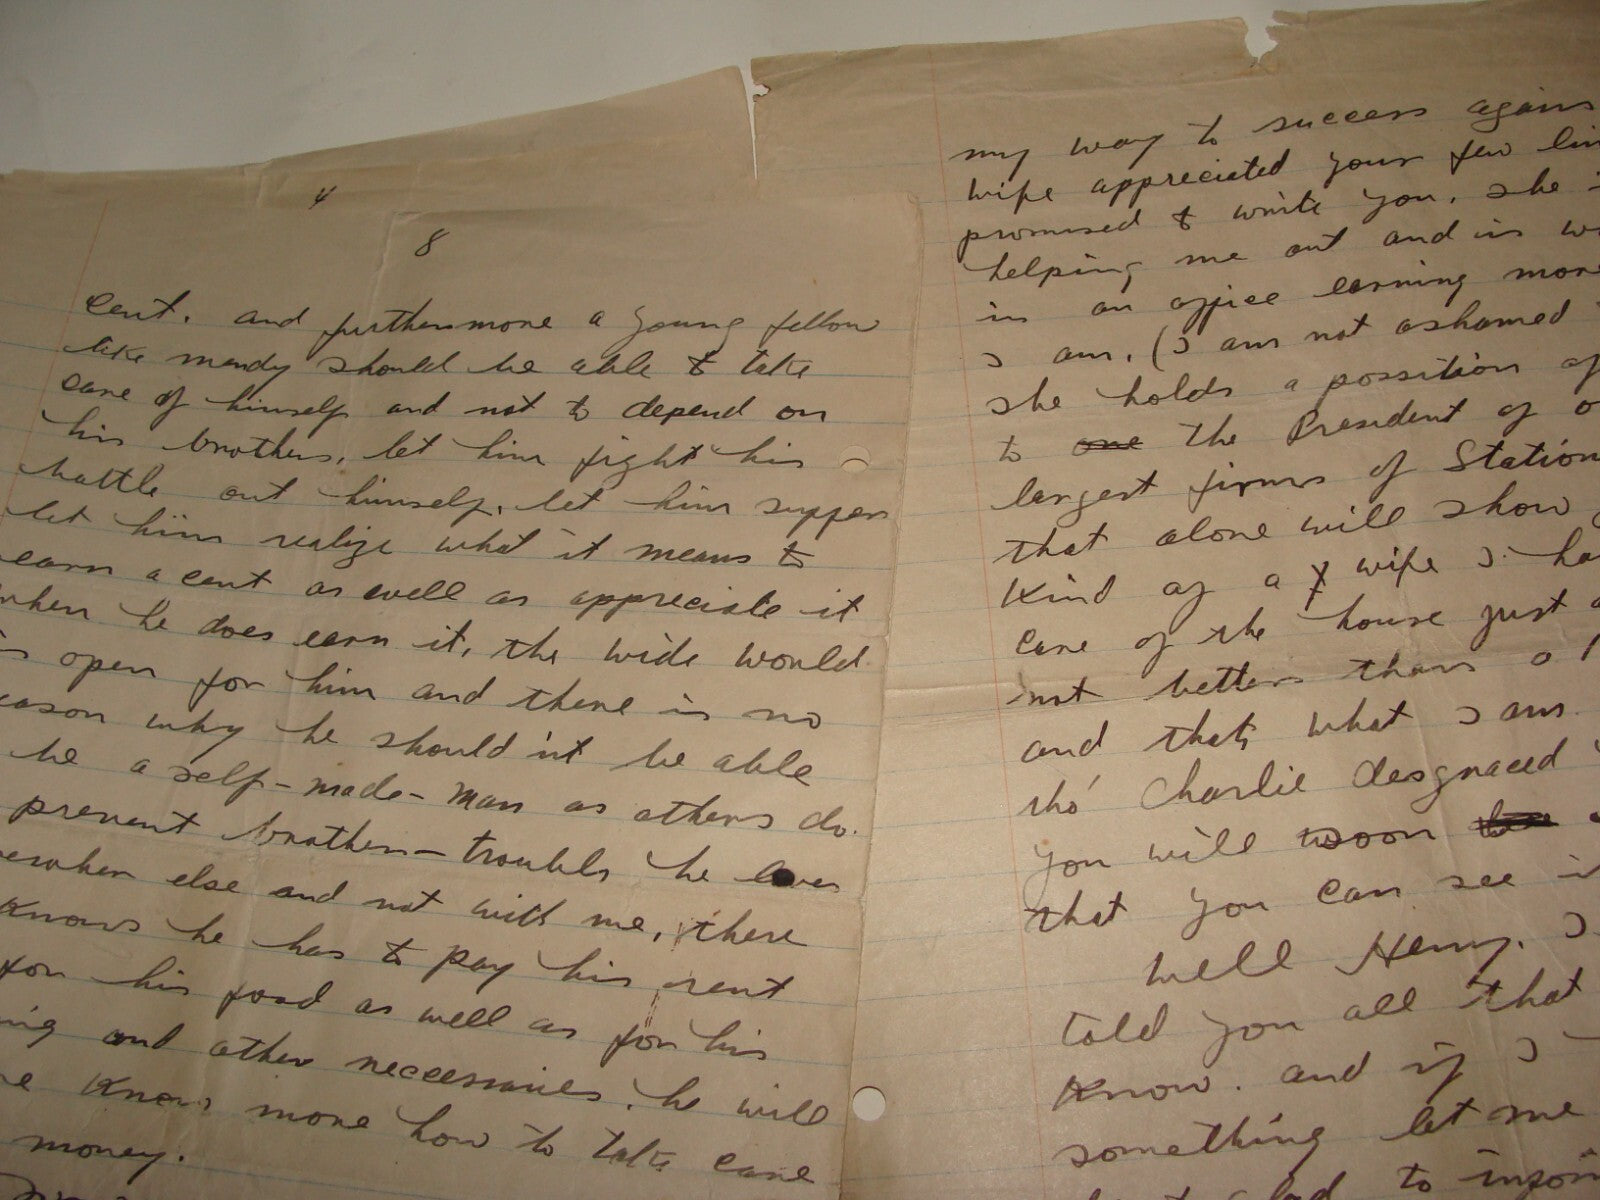 4
8
cent. and furthermore a young fellow
like mandy should be able to take
care of himself and not to depend on
his brothers, let him fight his
battle out himself, let him suffer
let him realize what it means to
earn a cent as well as appreciate it
when he does earn it, the wide would
is open for him and there is no
eason why he should'nt be able
be a self-made-man as others do.
prevent brother-troubls he
else and not with me, there
knows he has to pay his rent
for his food as well as for his
ing and other neccessaries. he will
e know more how to take care
money.
my way to success again
wife appreciated your few lin
promised to write you. she
helping me out and is w
in an office earning more
I am. (I am not ashamed
she holds a possition of
to one the President of o
largest firms of Station
that alone will show
Kind of a wife I ha
care of the house just
not better than
and that's what I am.
tho' Charlie desgraced
you will soon
that you can see i
well Henry. I
told you all that
Know. and if I
something let me
to